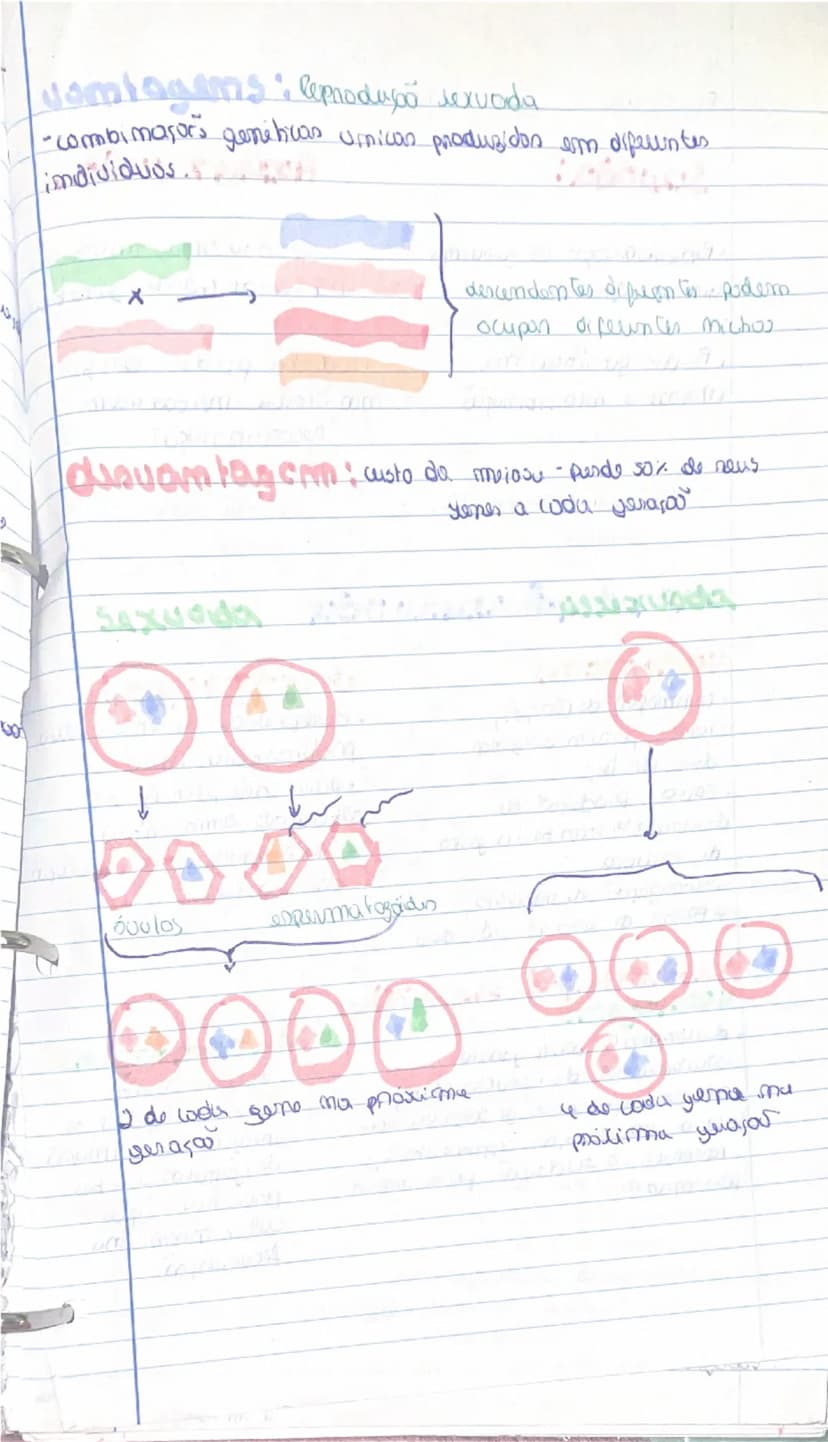 vantagens: Reprodução sexuada
-combinações genéticas únicas produzidas em diferentes
indivíduos.
x
descendentes diferentes podem
ocupar diferentes nichos
desvantagem: custo da meiose - perde 50% de seus
genes a cada geração
sexuada
assexuada
óvulos
espermatozóides
2 de cada gene na próxima
geração
4 de cada gene na
próxima geração